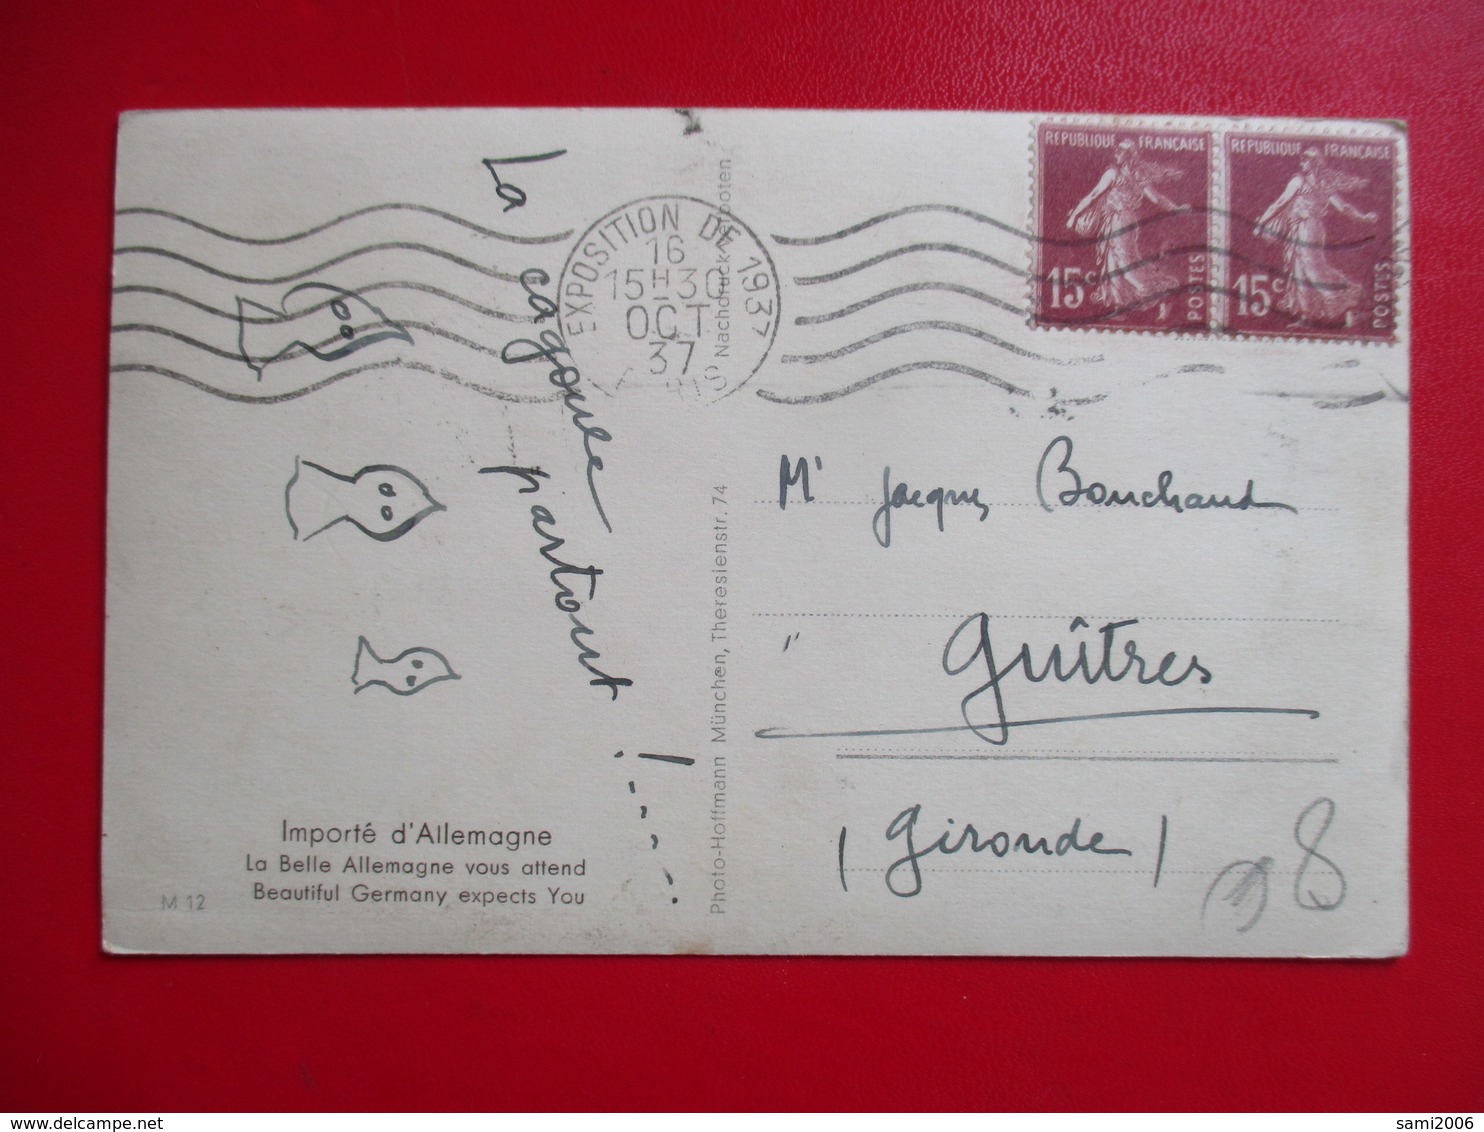 La cagoule partout !
EXPOSITION DE 1937
16
15H30
OCT
37
PARIS
REPUBLIQUE FRANÇAISE
15c
POSTES
REPUBLIQUE FRANÇAISE
15c
POSTES
Photo-Hoffmann München, Theresienstr. 74 Nachdruck verboten
Mr Jacques Bouchaud
" Guîtres
(Gironde)
8
Importé d'Allemagne
La Belle Allemagne vous attend
Beautiful Germany expects You
M 12
sami2006